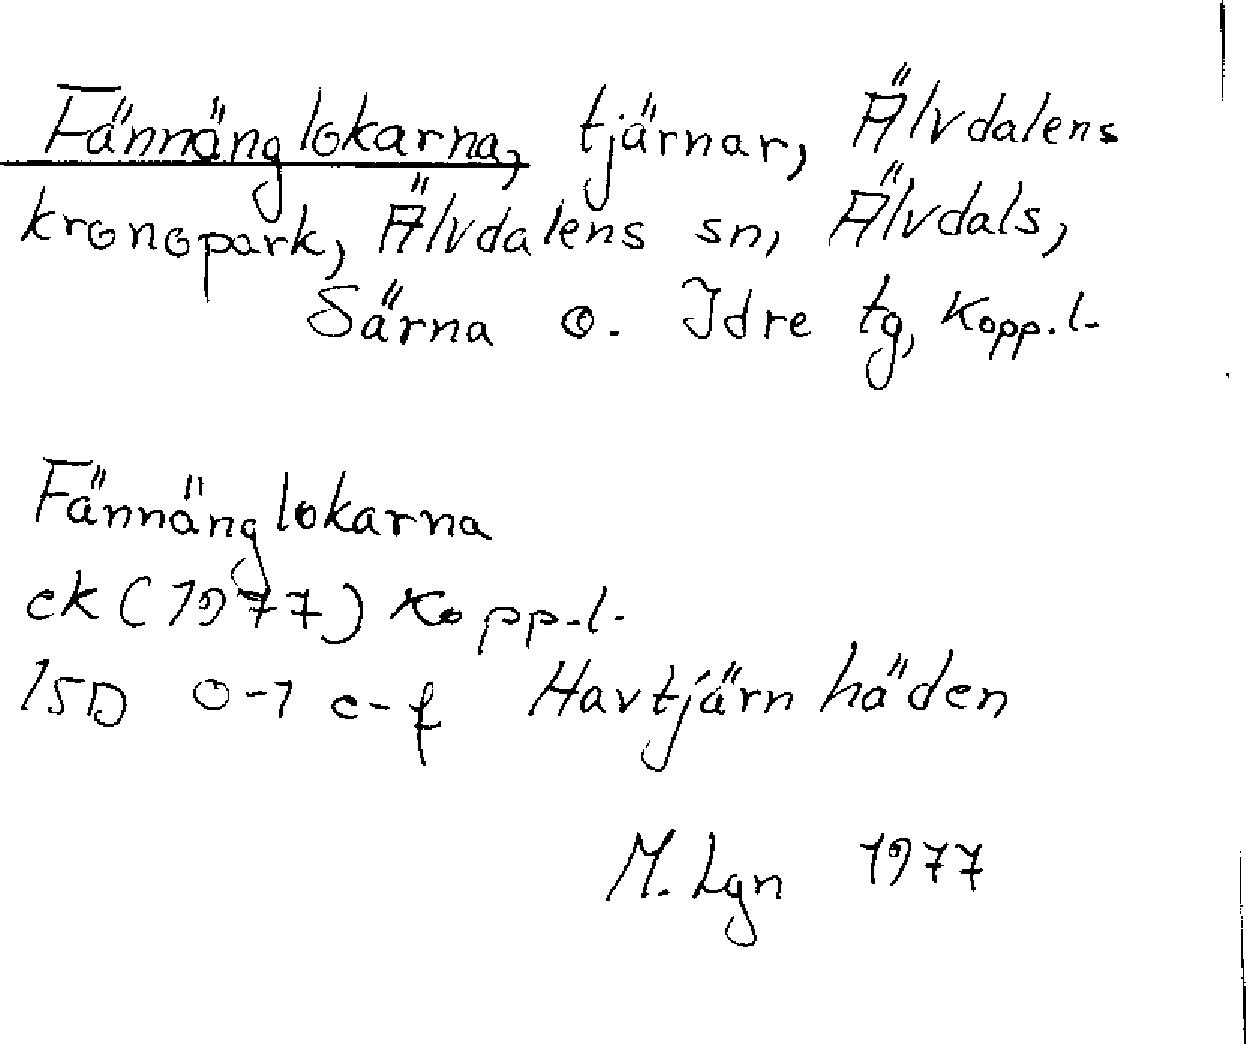 Fännänglokarna, tjärnar, Älvdalens
kronopark, Älvdalens sn, Älvdals,
Särna o. Idre tg, Kopp.l.
Fännänglokarna
ek (1977) Kopp.l.
15D 0-1 e-f Havtjärnhäden
M. Lgn 1977